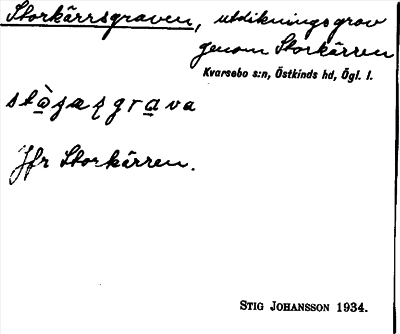 Storkärrsgraven, utdikningsgrav
genom Storkärren
Kvarsebo s:n, Östkinds hd, Ögl. l.
Jfr Storkärren.
STIG JOHANSSON 1934.